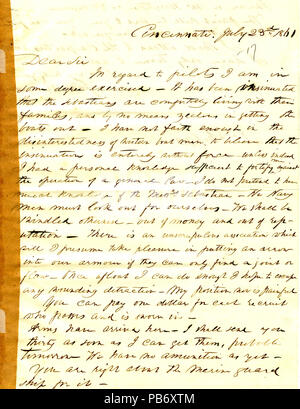 Cincinnati, July 23rd 1861
Dear Sir
In regard to pilots I am in
some degree exercised — It has been insinuated
that the are completely living with their
families, and by no means zealous in getting the
boats out — I have not faith enough in the
disinterestedness of and men, to believe that the
insinuation is entirely without force
I had a personal knowledge sufficient to
the opinion of a general
We Navy
men must look out for ourselves. We shall be
swindled otherwise out of money and out of rep-
utation — There is an unscrupulous association which
will I presume take pleasure in putting an arrow
into our armour if they can only find a joint or
flaw. Once afloat I can do enough I hope to escape
any wounding detraction — My position now is painful
You can pay one dollar for each recruit
who passes and is sworn in —
Arms have arrived here — I shall send you
thirty as soon as I can get them, probably
tomorrow. We have no ammunition as yet —
You are right about the Marine guard
ship for it —
alamy
Image ID: PB6XTM
www.alamy.com